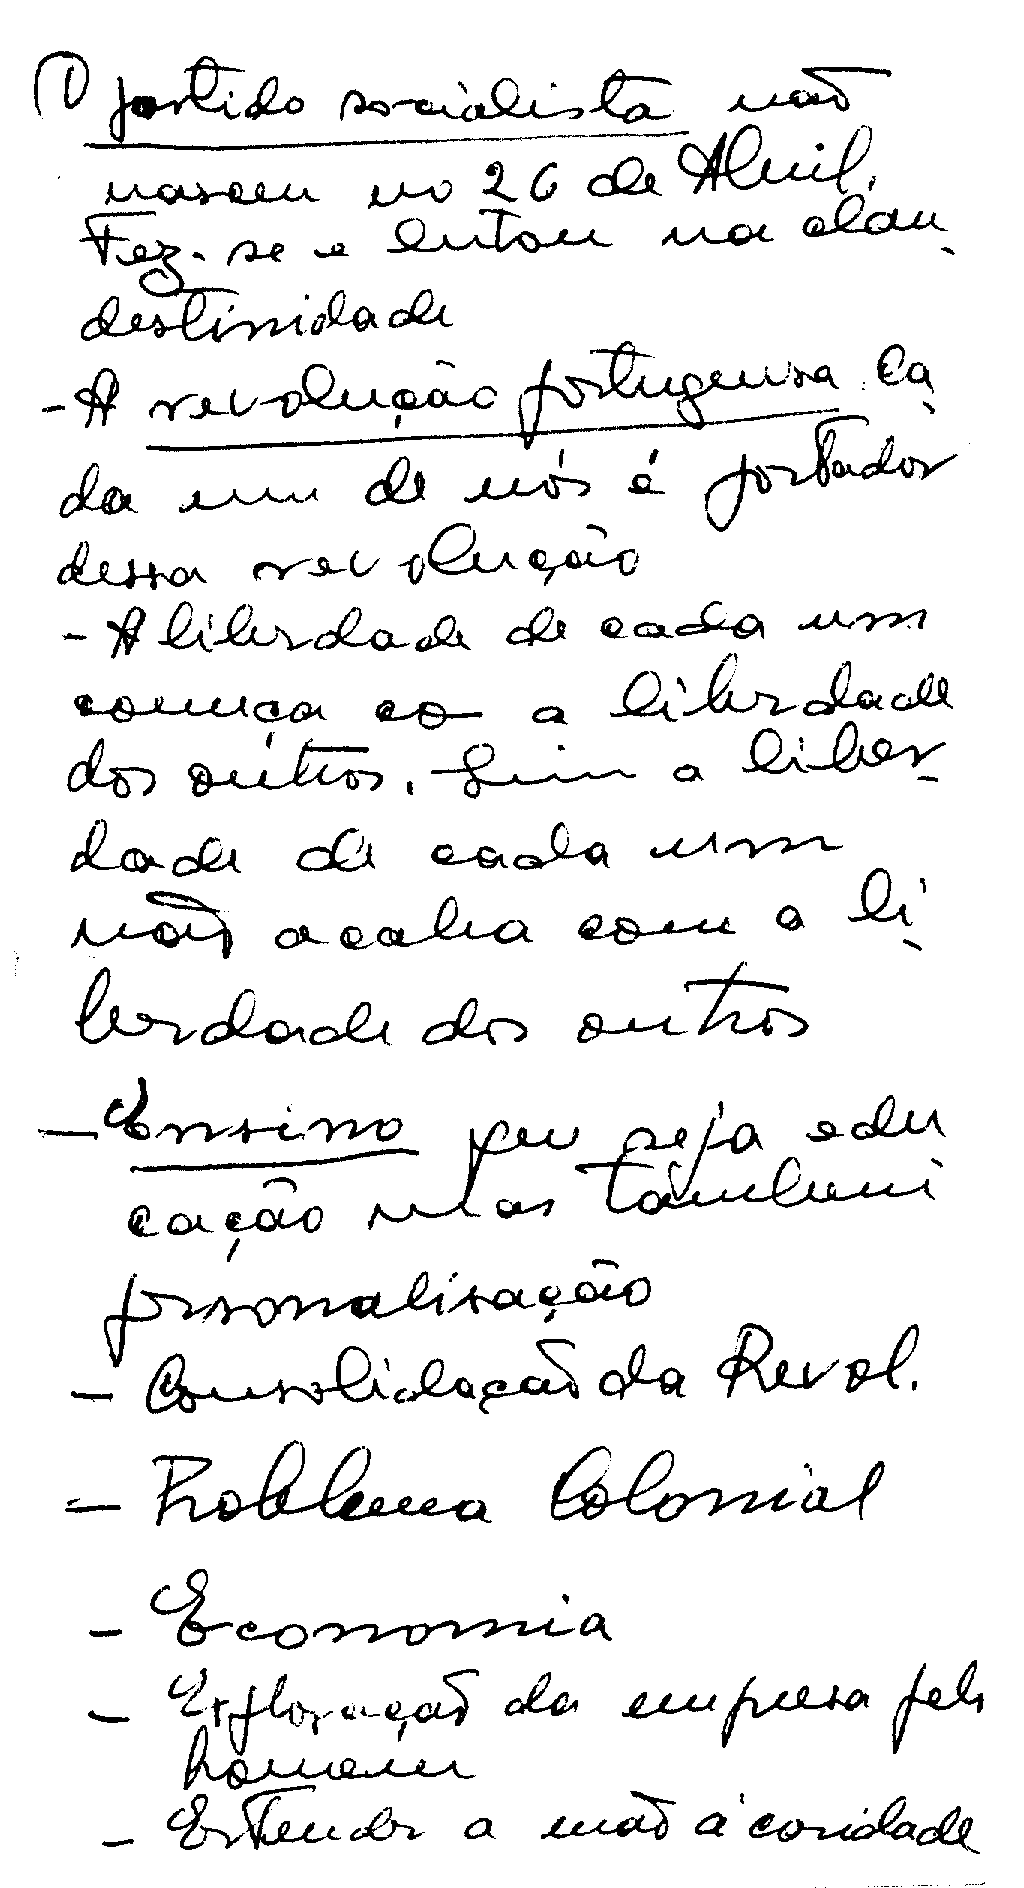 O partido socialista não
nasceu no 26 de Abril.
Fez-se e lutou na clan-
destinidade
- A revolução portuguesa. Ca-
da um de nós é portador
dessa revolução
- A liberdade de cada um
começa co a liberdade
dos outros. Sim a liber-
dade de cada um
não acaba com a li-
berdade dos outros
- Ensino que seja edu
cação mas também
personalisação
- Consolidação da Revol.
- Problema Colonial
- Economia
- Exploração da empresa pelo
homem
- Estender a mão à caridade